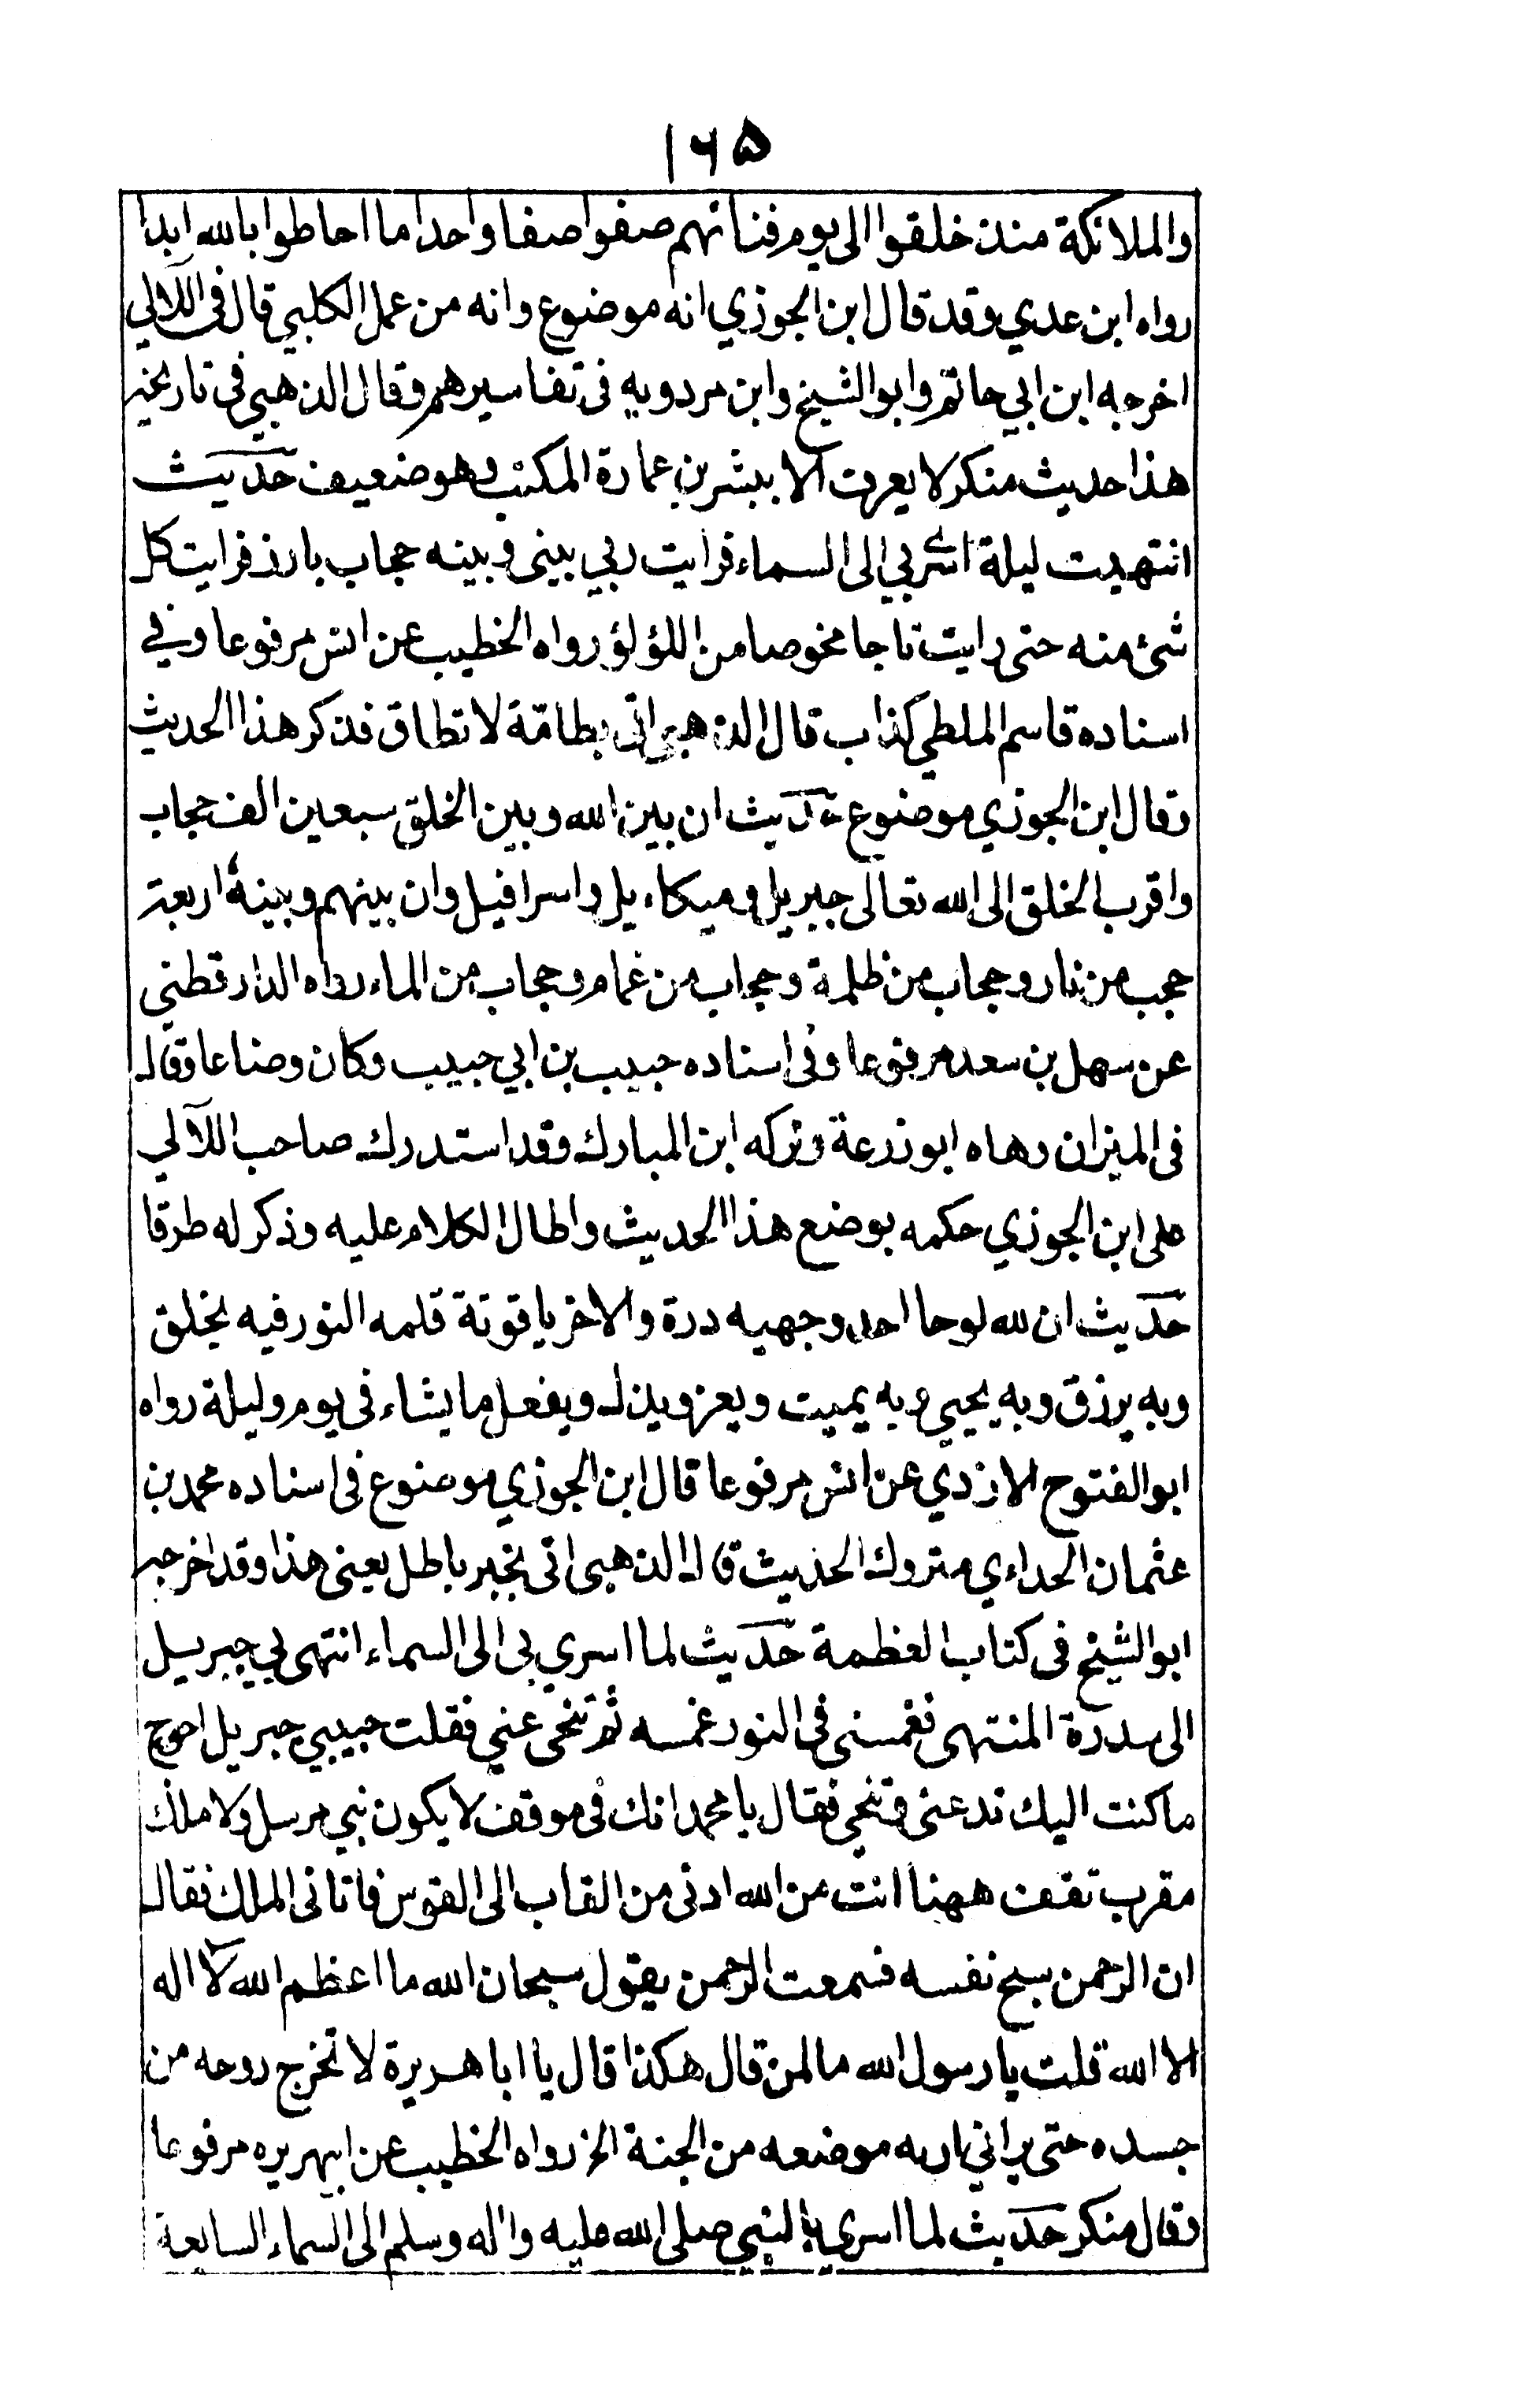 ١٦٥
والملائكة منذ خلقوا الى يوم فنائهم صفوا صفا واحدا ما احاطوا بالله ابدا
رواه ابن عدي وقد قال ابن الجوزي انه موضوع وانه من عمل الكلبي قال في اللآلي
اخرجه ابن ابي حاتم وابو الشيخ وابن مردويه في تفاسيرهم وقال الذهبي في تاريخه
هذا حديث منكر لا يعرف الا ببشر بن عمارة المكتب وهو ضعيف حديث
انتهيت ليلة اسري بي الى السماء فرايت ربي بيني وبينه حجاب بارز فرايت كل
شئ منه حتى رايت تاجا مخوصا من اللؤلؤ رواه الخطيب عن انس مرفوعا وفي
اسناده قاسم الملطي كذاب قال الذهبي اتى بطامّة لا تطاق فذكر هذا الحديث
وقال ابن الجوزي موضوع حديث ان بين الله وبين الخلق سبعين الف حجاب
واقرب الخلق الى الله تعالى جبريل وميكاءيل واسرافيل وان بينهم وبينه اربعة
حجب من نار وحجاب من ظلمة وحجاب من غمام وحجاب من الماء رواه الدارقطني
عن سهل بن سعد مرفوعا وفي اسناده حبيب بن ابي حبيب وكان وضاعا وقال
في الميزان وهاه ابو زرعة وتركه ابن المبارك وقد استدرك صاحب اللآلي
على ابن الجوزي حكمه بوضع هذا الحديث واطال الكلام عليه وذكر له طرقا
حديث ان لله لوحا احد وجهيه درة والاخر ياقوتة قلمه النور فيه يخلق
وبه يرزق وبه يحيي وبه يميت ويعز ويذل ويفعل ما يشاء في يوم وليلة رواه
ابو الفتوح الازدي عن انس مرفوعا قال ابن الجوزي موضوع في اسناده محمد بن
عثمان الحداءي متروك الحديث قال الذهبي اتى بخبر باطل يعني هذا وقد اخرجه
ابو الشيخ في كتاب العظمة حديث لما اسري بي الى السماء انتهى بي جبريل
الى سدرة المنتهى فغمسني في النور غمسه ثم تنحى عني فقلت حبيبي جبريل احوج
ما كنت اليك تدعني وتنحى فقال يا محمد انك في موقف لا يكون نبي مرسل ولا ملك
مقرب تقف ههنا انت من الله ادنى من القاب الى القوس فاتاني الملك فقال
ان الرحمن يسبح نفسه فسمعت الرحمن يقول سبحان الله ما اعظم الله لا اله
الا الله قلت يا رسول الله ما لمن قال هكذا قال يا ابا هريرة لا تخرج روحه من
جسده حتى يراني اريه موضعه من الجنة الخ رواه الخطيب عن ابيهريره مرفوعا
وقال منكر حديث لما اسري بالنبي صلى الله عليه واله وسلم الى السماء السابعة